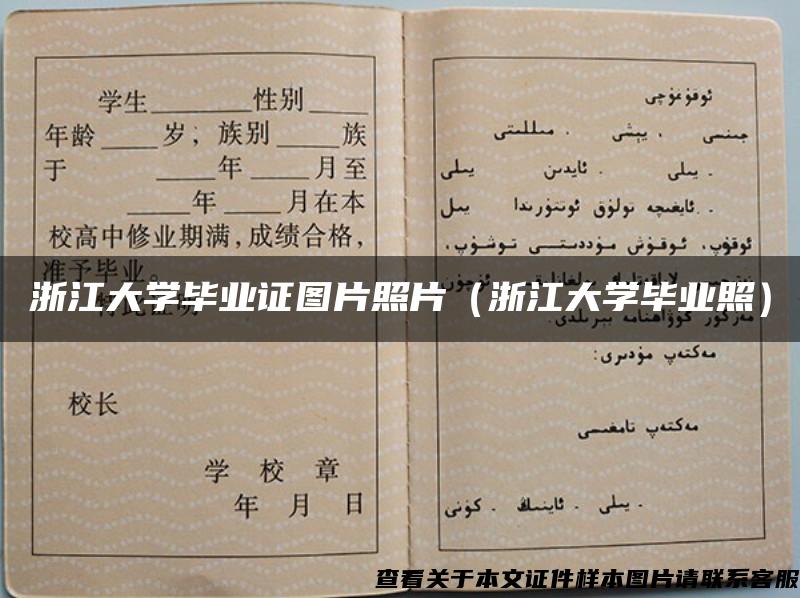 学生______性别____
年龄____岁；族别____族
于 ____年____月至
____年____月在本
校高中修业期满，成绩合格，
准予毕业。
校长
学 校 章
年 月 日
ئوقۇغۇچى
جىنسى ، يېشى . مىللىتى
. يىلى . ئايدىن يىلى
. ئايغىچە تولۇق ئوتتۇرىدا يىل
ئوقۇپ، ئوقۇش مۇددىتى توشۇپ،
مەكتەپ مۇدىرى:
مەكتەپ تامغىسى
. يىلى . ئاينىڭ . كۈنى
浙江大学毕业证图片照片（浙江大学毕业照）
查看关于本文证件样本图片请联系客服